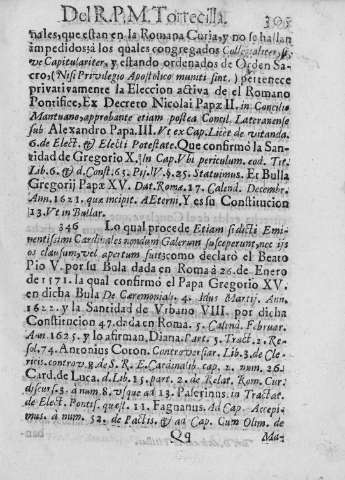 Del R. P. M. Torrecilla. 305
nales, que estan en la Romana Curia, y no se hallan
impedidos; à los quales congregados Collegialiter, sive
ve Capitulariter, y estando ordenados de Orden Sa-
cro, (Nisi Privilegio Apostolico muniti sint.) pertenece
privativamente la Eleccion activa de el Romano
Pontifice, Ex Decreto Nicolai Papæ II. in Concilio
Mantuano, approbante etiam postea Concil. Lateranense
sub Alexandro Papa. III. Vt ex Cap. Licet de vitanda.
6. de Elect. & Electi Potestate. Que confirmò la San-
tidad de Gregorio X. In Cap. Vbi periculum. eod. Tit.
Lib. 6. & d. Const. 63. Pij. IV. §. 25. Statuimus. Et Bulla
Gregorij Papæ XV. Dat. Romæ. 17. Calend. Decembr.
Ann. 1621. quæ incipit. AEterni, Y es su Constitucion
13. Vt in Bullar.
346 Lo qual procede Etiam si dicti Emi-
nentissimi Cardinales nondum Galerum susceperunt, nec ijs
os clausum, vel apertum fuit; como declarò el Beato
Pio V. por su Bula dada en Roma à 26. de Enero
de 1571. la qual confirmò el Papa Gregorio XV.
en dicha Bula De Ceremoniali. 4. Idus Martij. Ann.
1622. y la Santidad de Vrbano VIII. por dicha
Constitucion 47. dada en Roma. 5. Calend. Februar.
Ann. 1625. y lo afirman, Diana. Part. 5. Tract. 2. Re-
sol. 74. Antonius Coton. Controversiar. Lib. 3. de Cle-
ricis. controv. 8. de S. R. E. Cardinalib. cap. 2. num. 26.
Card. de Luca. d. Lib. 15. part. 2. de Relat. Rom. Cur.
discurs. 3. à num. 8. vsque ad 13. Passerinus. in Tractat.
de Elect. Pontif. quæst. 11. Fagnanus. Ad Cap. Accepi-
mus. à num. 52. de Pactis. & ad Cap. Cum Olim. de
Qq Ma-